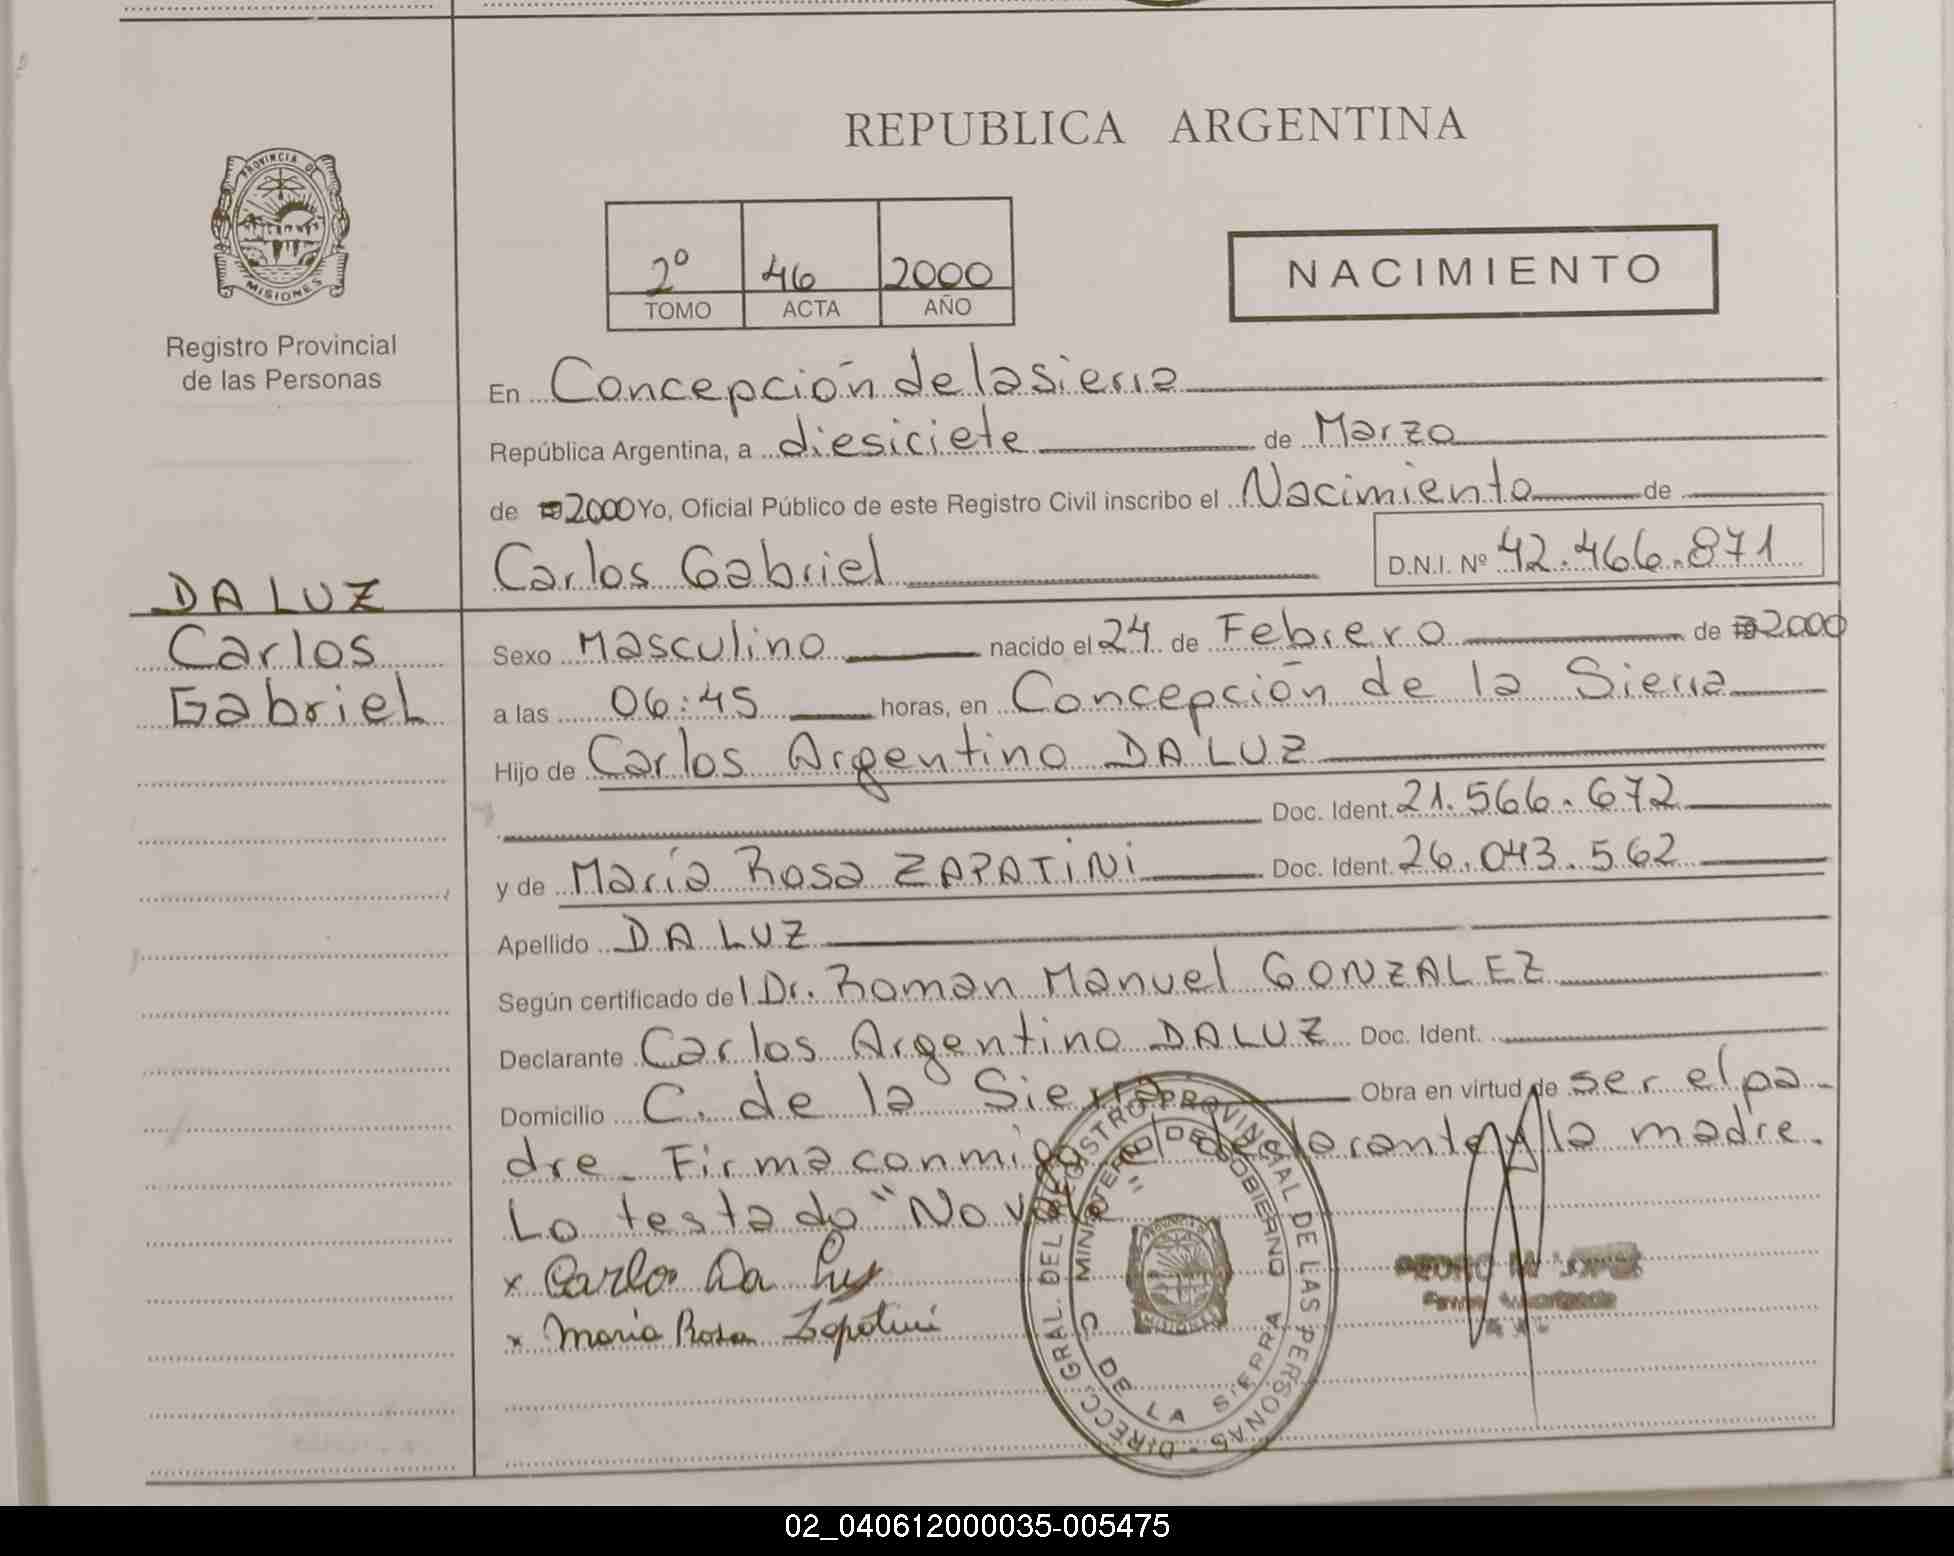 PROVINCIA DE
MISIONES
Registro Provincial
de las Personas
DA LUZ
Carlos
Gabriel
REPUBLICA ARGENTINA
2º 46 2000
TOMO ACTA AÑO
NACIMIENTO
En Concepción de la sierra
República Argentina, a diesiciete de Marzo
de 2000 Yo, Oficial Público de este Registro Civil inscribo el Nacimiento de
Carlos Gabriel D.N.I. Nº 42.466.871
Sexo Masculino nacido el 24 de Febrero de 2000
a las 06:45 horas, en Concepción de la Sierra
Hijo de Carlos Argentino DA LUZ
Doc. Ident. 21.566.672
y de María Rosa ZAPATiNi Doc. Ident. 26.043.562
Apellido DA LUZ
Según certificado del Dr. Roman Manuel GONZALEZ
Declarante Carlos Argentino DA LUZ Doc. Ident.
Domicilio C. de la Sierra Obra en virtud de ser el pa-
dre_ Firma conmigo el declarante y la madre.
Lo testado "No vale"
x Carlos Da Luz
x Maria Rosa Zapatini
DIRECC. GRAL. DEL REGISTRO PROVINCIAL DE LAS PERSONAS
MINISTERIO DE GOBIERNO
C. DE LA SIERRA
02_040612000035-005475